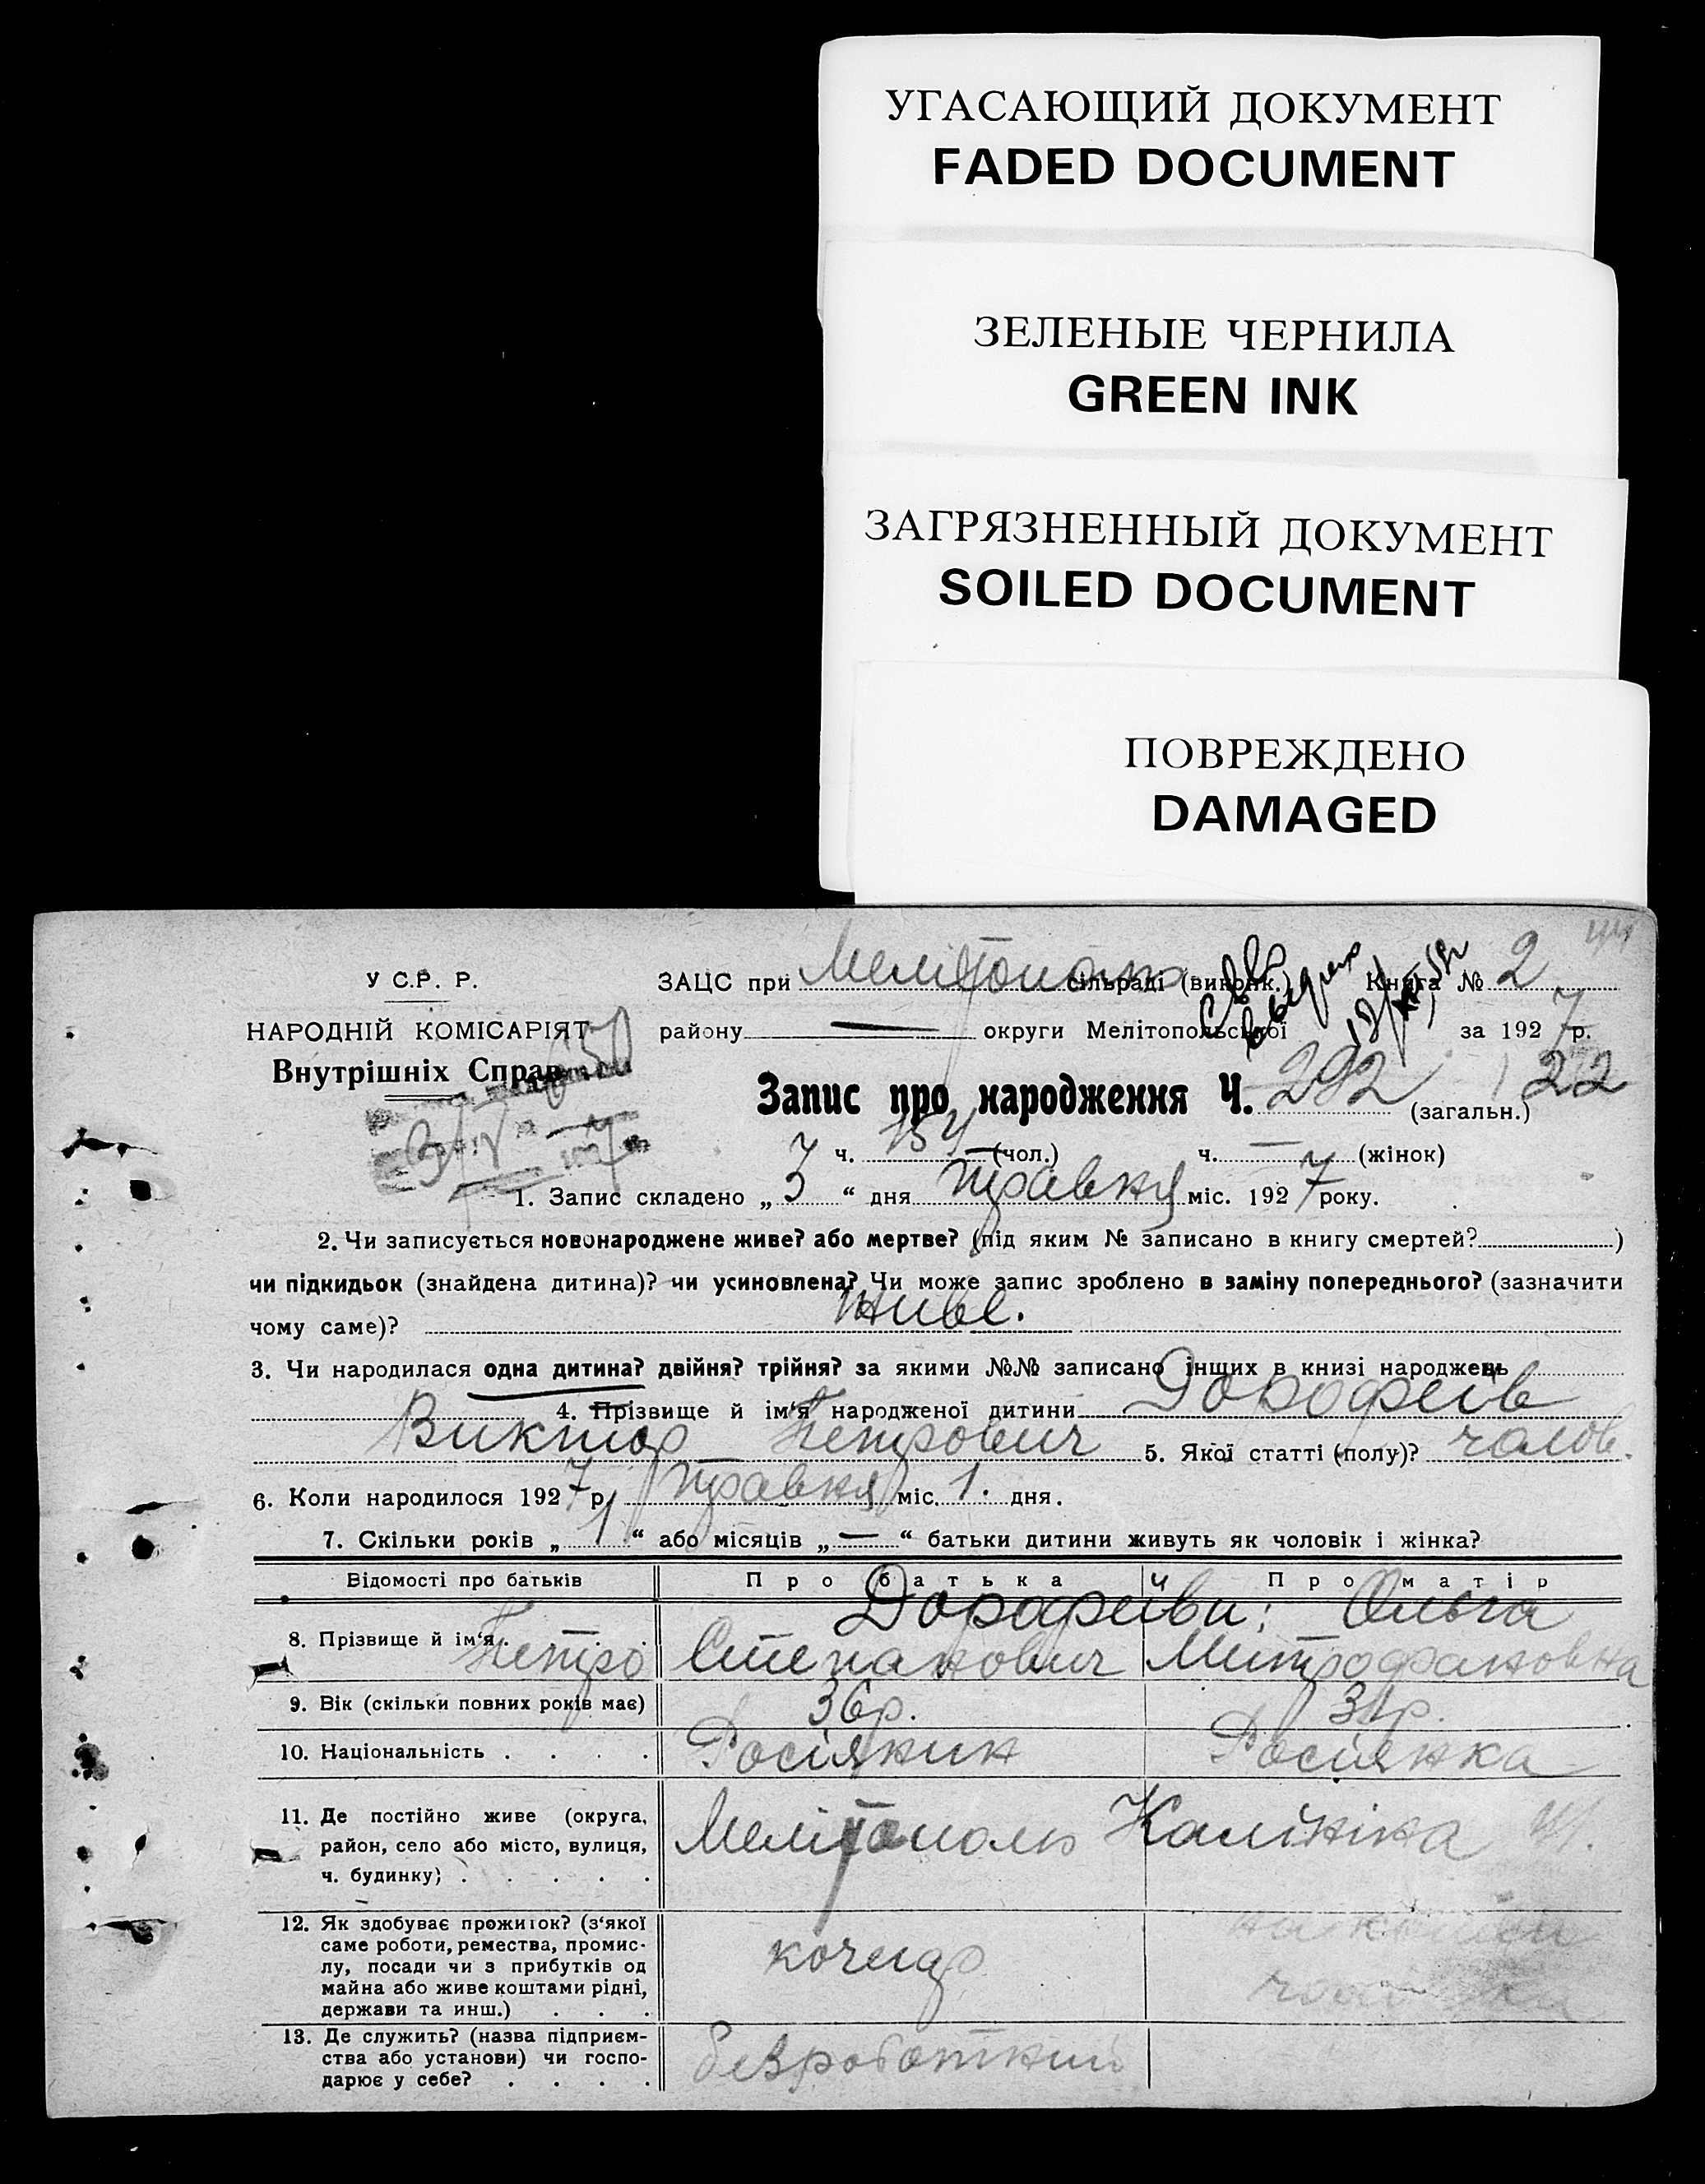 УГАСАЮЩИЙ ДОКУМЕНТ
FADED DOCUMENT
ЗЕЛЕНЫЕ ЧЕРНИЛА
GREEN INK
ЗАГРЯЗНЕННЫЙ ДОКУМЕНТ
SOILED DOCUMENT
ПОВРЕЖДЕНО
DAMAGED
У С.Р. Р.
НАРОДНІЙ КОМІСАРІЯТ
Внутрішніх Справ
ЗАЦС при сільраді (виконк.) Книга № 2
району — округи Мелітопольської за 1927 р.
Запис про народження Ч. 292 (загальн.) 22
ч. 154 (чол.) ч. — (жінок)
1. Запис складено „ 3 “ дня травня міс. 1927 року.
2. Чи записується новонароджене живе? або мертве? (під яким № записано в книгу смертей? )
чи підкидьок (знайдена дитина)? чи усиновлена? Чи може запис зроблено в заміну попереднього? (зазначити
чому саме)? живе.
3. Чи народилася одна дитина? двійня? трійня? за якими №№ записано інших в книзі народжень
4. Прізвище й ім'я народженої дитини Дорофеів
Виктор Петрович 5. Якої статті (полу)? чолов.
6. Коли народилося 1927 р. травня міс. 1. дня.
7. Скільки років „ 1 “ або місяців „ — “ батьки дитини живуть як чоловік і жінка?
Відомості про батьків Про батька Про матір
Дорофеиви: Ольга
8. Прізвище й ім'я . Петро Степанович Митрофановна
9. Вік (скільки повних років має) 36р. 31р.
10. Національність . . . . Росіянин Росіянка
11. Де постійно живе (округа,
район, село або місто, вулиця,
ч. будинку) . . . . . Мелітополь Калініна
12. Як здобуває прожиток? (з'якої
саме роботи, ремества, промис-
лу, посади чи з прибутків од
майна або живе коштами рідні,
держави та инш.) . . . кочегар
13. Де служить? (назва підприєм-
ства або установи) чи госпо-
дарює у себе? . . . . безроботний